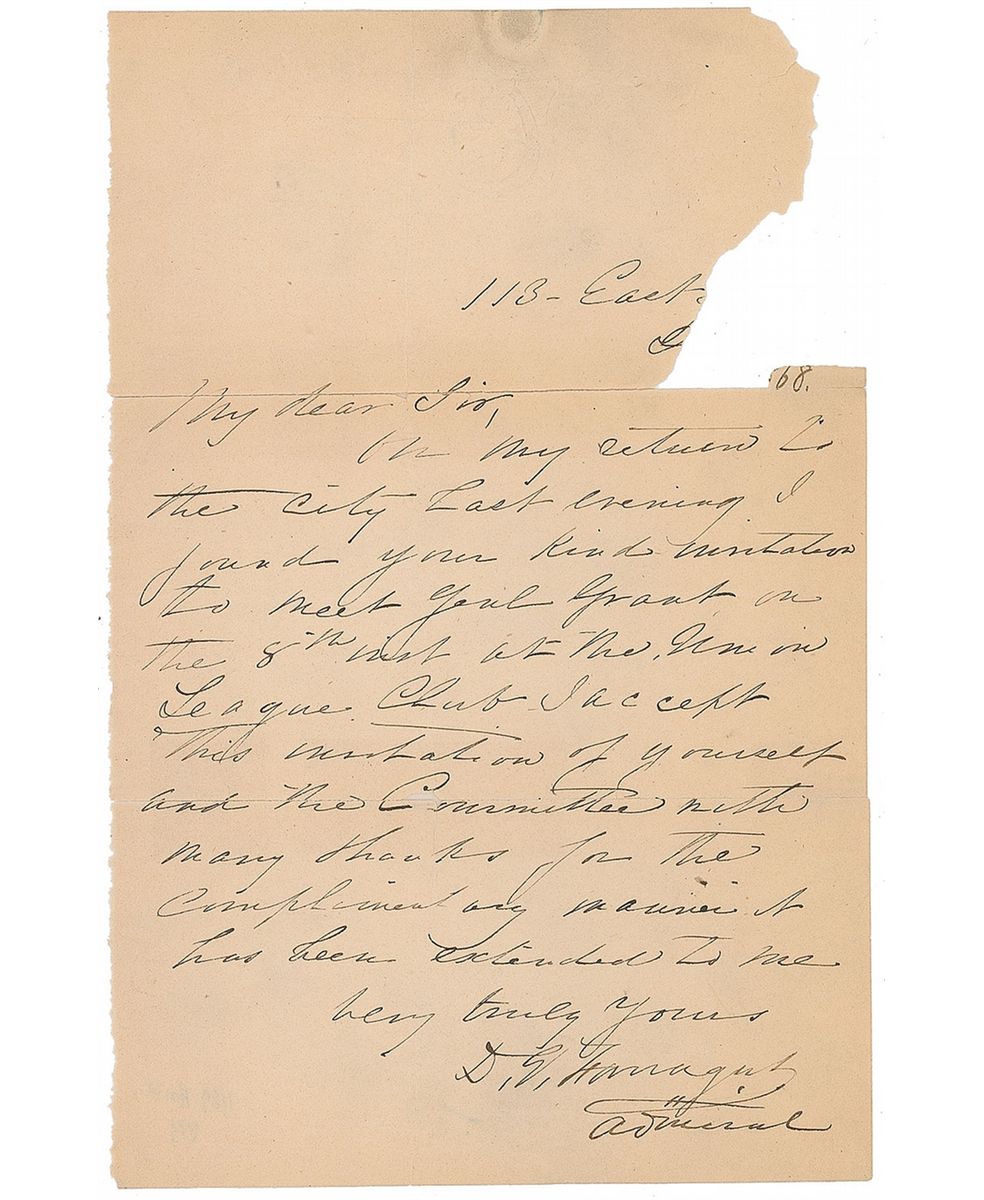 113 - East
68.
My dear Sir,
On my return to
the city Last evening I
found your kind invitation
to meet Genl Grant on
the 8th inst at the Union
League Club I accept
this invitation of yourself
and the Committee with
many thanks for the
complimentary manner it
has been extended to me
very truly Yours
D. G. Farragut
Admiral